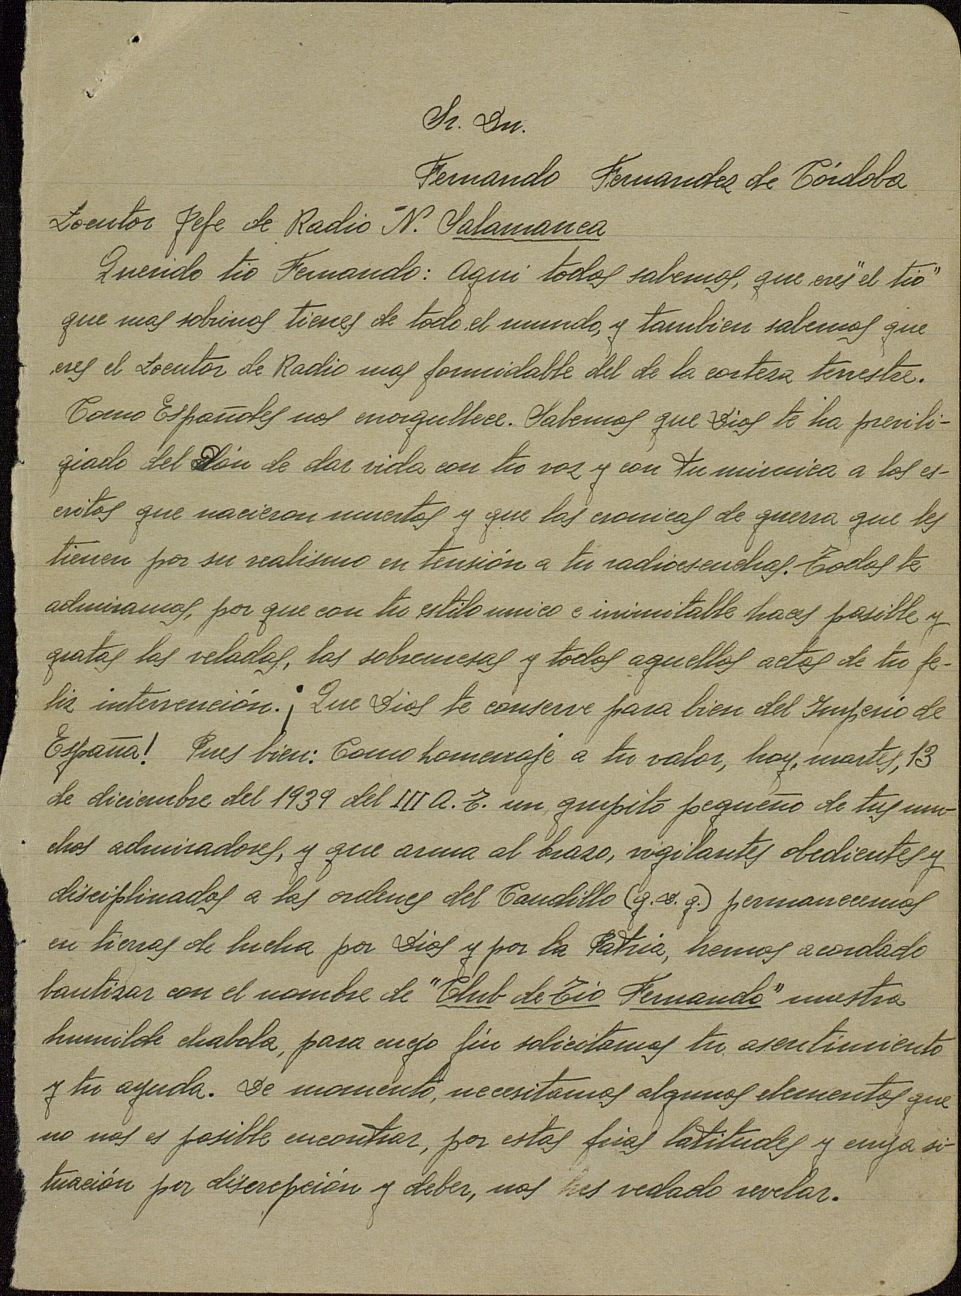 Sr. Dn.
Fernando Fernandez de Córdoba
Locutor Jefe de Radio N. Salamanca
Querido tio Fernando: Aqui todos sabemos, que eres "el tio"
que mas sobrinos tienes de todo el mundo, y tambien sabemos que
eres el Locutor de Radio mas formidable del de la corteza terrestre.
Como Españoles nos enorgullece. Sabemos que Dios te ha previli-
giado del Dón de dar vida con tu voz y con tu mimica a los es-
critos que nacieron muertos y que las cronicas de guerra que les
tienen por su realismo en tensión a tu radioescuchas. Todos te
admiramos, por que con tu estilo unico e inimitable haces posible y
gratas las veladas, las sobremesas y todos aquellos actos de tu fe-
liz intervención. ¡Que Dios te conserve para bien del Imperio de
España! Pues bien: Como homenaje a tu valor, hoy, martes, 13
de diciembre del 1939 del III A. T. un grupito pequeño de tus mu-
chos admiradores, y que arma al brazo, vigilantes obedientes y
disciplinados a las ordenes del Caudillo (q.D.g.) permanecemos
en tierras de lucha por Dios y por la Patria, hemos acordado
bautizar con el nombre de "Club de Tio Fernando" nuestra
humilde chabola, para cuyo fin solicitamos tu asentimiento
y tu ayuda. De momento, necesitamos algunos elementos que
no nos es posible encontrar, por estas frias latitudes y cuya si-
tuación por discrepción y deber, nos es vedado revelar.